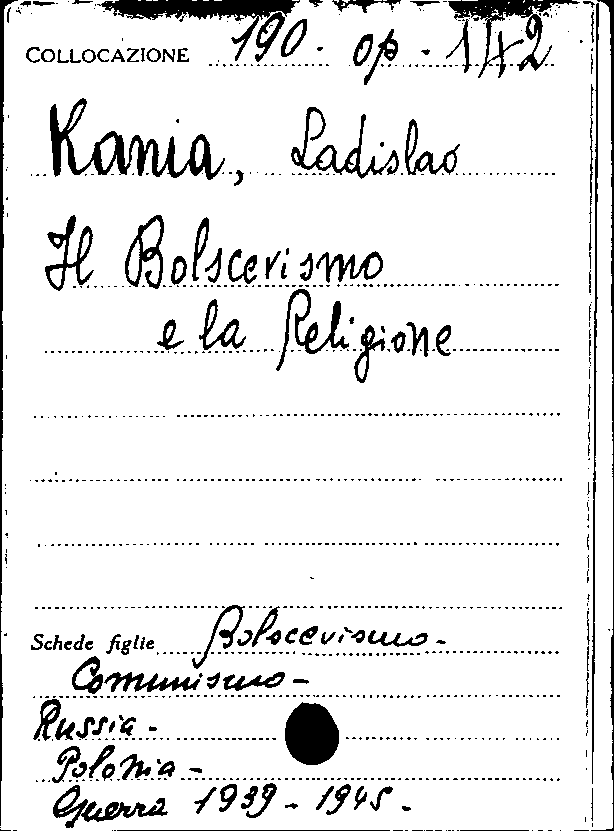 COLLOCAZIONE 190. op. 142
Kania, Ladislao
Il Bolscevismo
e la Religione
Schede figlie Bolscevismo -
Comunismo -
Russia -
Polonia -
Guerra 1939 - 1945 -